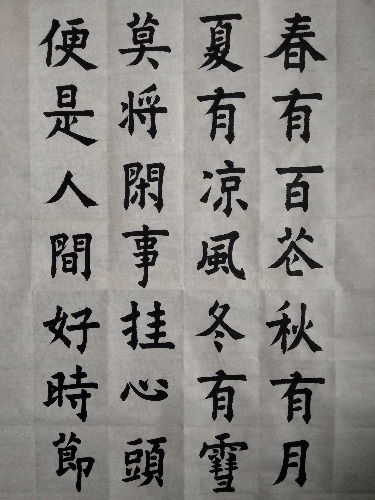 春有百花秋有月
夏有凉風冬有雪
莫将閑事挂心頭
便是人間好時節